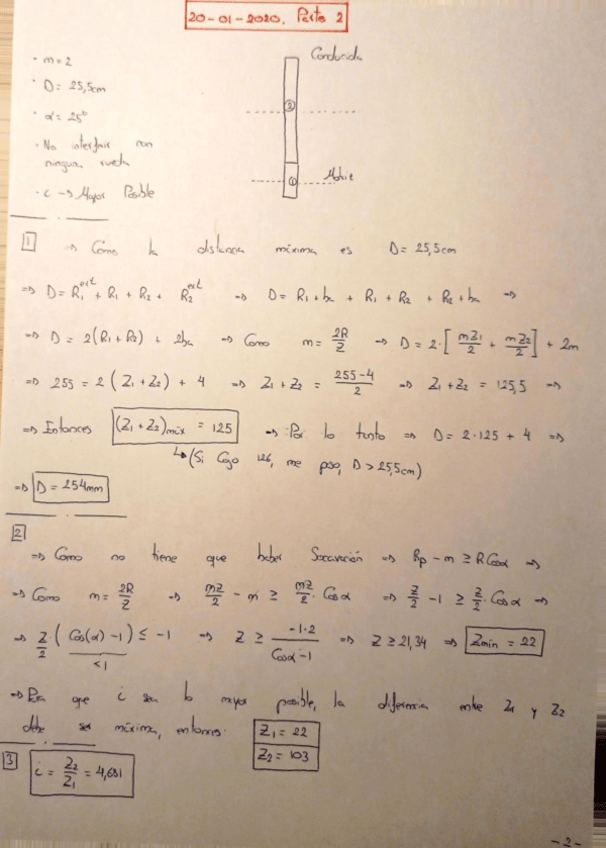 20-01-2020. Parte 2
· m=2
· D= 25,5cm
· α= 25°
· No interferir con
ninguna rueda
· i → Mayor Posible
Conducida
2
1
Motriz
1 ⇒ Cómo la distancia máxima es D= 25,5cm
⇒ D= R₁ᵉˣᵗ + R₁ + R₂ + R₂ᵉˣᵗ ⇒ D= R₁+ba + R₁ + R₂ + R₂+ba ⇒
⇒ D= 2(R₁+R₂) + 2ba ⇒ Como m= 2R/Z ⇒ D= 2·[mZ₁/2 + mZ₂/2] + 2m
⇒ 255 = 2(Z₁+Z₂) + 4 ⇒ Z₁+Z₂ = 255-4/2 ⇒ Z₁+Z₂ = 125,5 ⇒
⇒ Entonces (Z₁+Z₂)máx = 125 ⇒ Por lo tanto ⇒ D= 2·125 + 4 ⇒
↳ (Si Cojo 126, me paso, D > 25,5cm)
⇒ D= 254mm
2
⇒ Como no tiene que haber Socavación ⇒ Rp - m ≥ R Cosα ⇒
⇒ Como m= 2R/Z ⇒ mZ/2 - m ≥ mZ/2 · Cosα ⇒ Z/2 - 1 ≥ Z/2 · Cosα ⇒
⇒ Z/2 (Cos(α) - 1) ≤ -1 ⇒ Z ≥ -1·2/Cosα-1 ⇒ Z ≥ 21,34 ⇒ Zmin = 22
<1
⇒ Para que i sea lo mayor posible, la diferencia entre Z₁ y Z₂
debe ser máxima, entonces: Z₁ = 22
Z₂ = 103
3 i = Z₂/Z₁ = 4,681
-2-